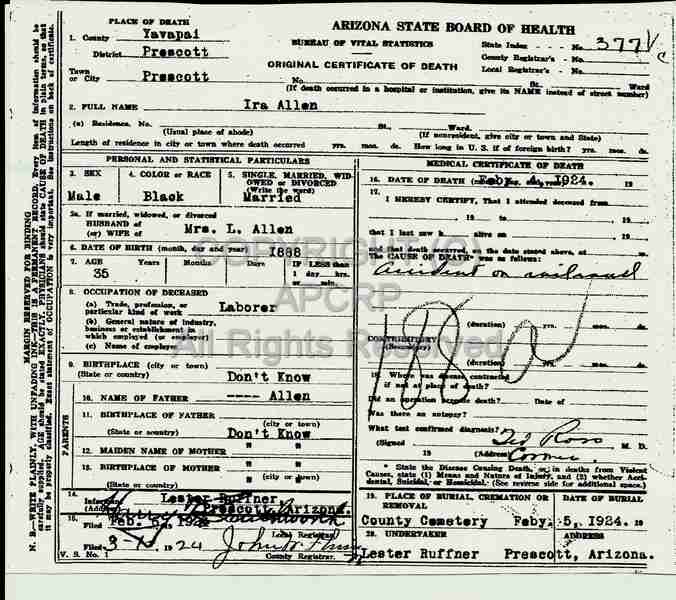 ARIZONA STATE BOARD OF HEALTH
BUREAU OF VITAL STATISTICS
ORIGINAL CERTIFICATE OF DEATH
State Index - - No. 377
County Registrar's - No.
Local Registrar's - No.
PLACE OF DEATH
1. County Yavapai
District Prescott
Town or City Prescott No. St., Ward
(If death occurred in a hospital or institution, give its NAME instead of street number)
2. FULL NAME Ira Allen
(a) Residence, No. St., Ward.
(Usual place of abode) (If nonresident, give city or town and State)
Length of residence in city or town where death occurred yrs. mos. ds. How long in U. S. if of foreign birth? yrs. mos. ds.
PERSONAL AND STATISTICAL PARTICULARS
3. SEX 4. COLOR or RACE 5. SINGLE, MARRIED, WIDOWED or DIVORCED (Write the word)
Male Black Married
5a. If married, widowed, or divorced
HUSBAND of
(or) WIFE of Mrs. L. Allen
6. DATE OF BIRTH (month, day and year) 1888
7. AGE Years Months Days IF LESS than
35 1 day hrs.
or min.
8. OCCUPATION OF DECEASED
(a) Trade, profession, or
particular kind of work Laborer
(b) General nature of industry,
business or establishment in
which employed (or employer)
(c) Name of employer
9. BIRTHPLACE (city or town)
(State or country) Don't Know
10. NAME OF FATHER ---- Allen
PARENTS
11. BIRTHPLACE OF FATHER (city or town)
(State or country) Don't Know
12. MAIDEN NAME OF MOTHER " "
13. BIRTHPLACE OF MOTHER " "
(city or town)
14. Informant Lester Ruffner
(Address) Prescott, Arizona.
15. Filed Feb. 5, 192
Local Registrar
Filed 3- 1924 John W.
County Registrar.
V. S. No. 1
MEDICAL CERTIFICATE OF DEATH
16. DATE OF DEATH Feby. 4, 1924. 19
17. I HEREBY CERTIFY, That I attended deceased from
19 to 19
that I last saw h alive on 19
and that death occurred, on the date stated above, at m.
The CAUSE OF DEATH* was as follows:
Accident on railroad
(duration) yrs. mos. ds.
CONTRIBUTORY
(Secondary)
(duration) yrs. mos. ds.
18. Where was disease contracted
if not at place of death?
Did an operation precede death? Date of
Was there an autopsy?
What test confirmed diagnosis?
(Signed) Ted Ross M. D.
19 (Address) Coroner
* State the Disease Causing Death, or, in deaths from Violent
Causes, state (1) Means and Nature of Injury, and (2) whether Accidental,
Suicidal, or Homicidal. (See reverse side for additional space.)
19. PLACE OF BURIAL, CREMATION OR REMOVAL DATE OF BURIAL
County Cemetery Feby. 5, 1924. 19
20. UNDERTAKER ADDRESS
Lester Ruffner Prescott, Arizona.
MARGIN RESERVED FOR BINDING
N. B. WRITE PLAINLY, WITH UNFADING INK—THIS IS A PERMANENT RECORD. Every item of information should be
carefully supplied. AGE should be stated EXACTLY. PHYSICIANS should state CAUSE OF DEATH in plain terms, so that
it may be properly classified. Exact statement of OCCUPATION is very important. See instructions on back of certificate.
COPYRIGHT (C)
APCRP
All Rights Reserved